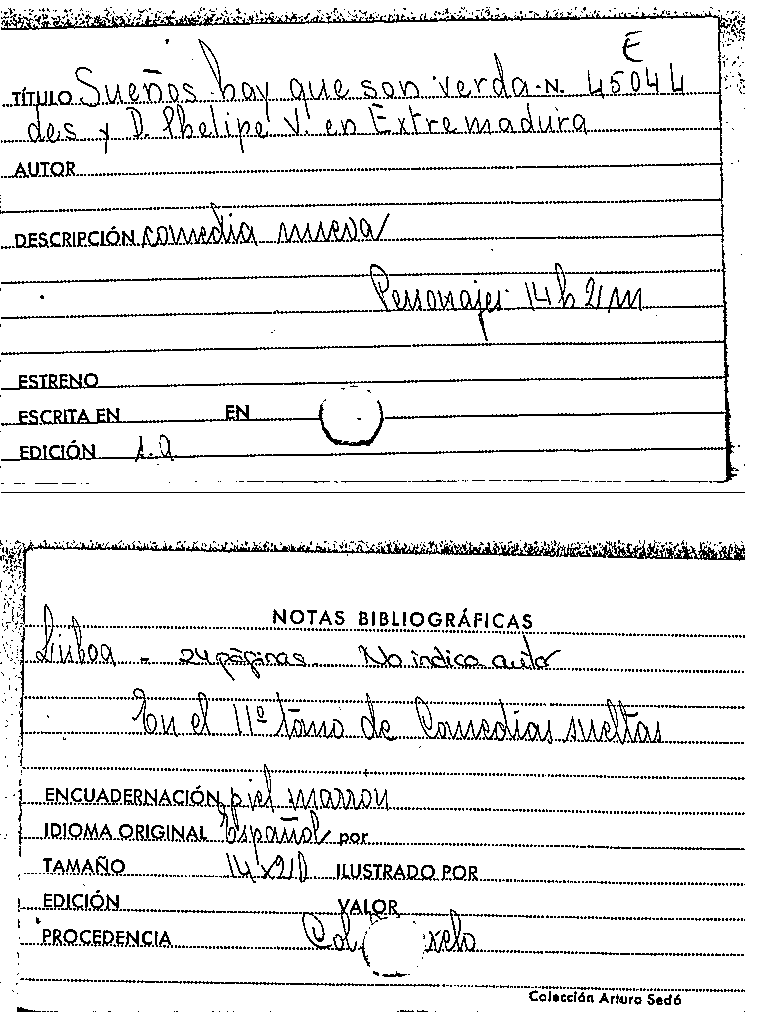 E
TÍTULO Sueños hay que son verda- N. 45044
des y D. Phelipe V. en Extremadura
AUTOR
DESCRIPCIÓN comedia nueva
Personajes 14 h 21 m
ESTRENO
ESCRITA EN EN
EDICIÓN s.a
NOTAS BIBLIOGRÁFICAS
Lisboa - 24 páginas. No indica autor
En el 11º tomo de Comedias sueltas
ENCUADERNACIÓN piel marron
IDIOMA ORIGINAL Español por
TAMAÑO 14 x 210 ILUSTRADO POR
EDICIÓN VALOR
PROCEDENCIA Col
Colección Arturo Sedó